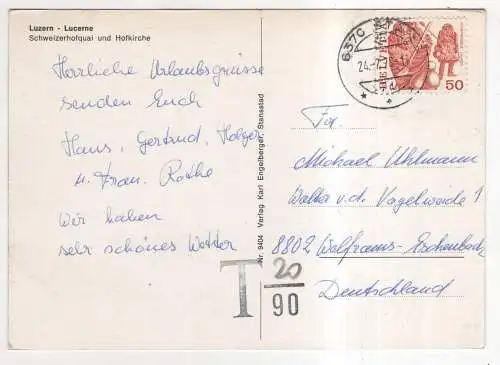 Luzern - Lucerne
Schweizerhofquai und Hofkirche
Herrliche Urlaubsgrüsse
senden Euch
Hans, Gertrud, Holger
u. Fran. Rothe
Wir haben
sehr schönes Wetter
Nr. 9404 Verlag Karl Engelberger, Stansstad
T 20
90
6370
24.-7.
HELVETIA
50
Fa.
Michael Uhlmann
Walter v. d. Vogelweide 1
8802 Wolframs-Eschenbach
Deutschland